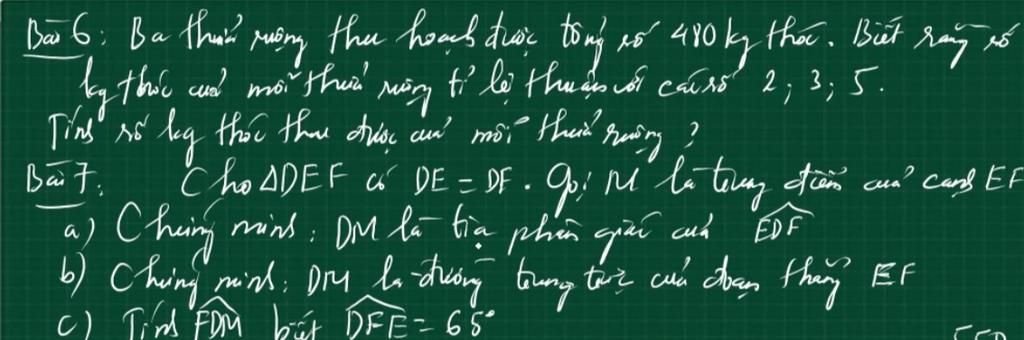 Bài 6: Ba thửa ruộng thu hoạch được tổng số 480 kg thóc. Biết rằng số
kg thóc của mỗi thửa ruộng tỉ lệ thuận với các số 2; 3; 5.
Tính số kg thóc thu được của mỗi thửa ruộng?
Bài 7: Cho ΔDEF có DE = DF. Gọi M là trung điểm của cạnh EF
a) Chứng minh: DM là tia phân giác của $\widehat{EDF}$
b) Chứng minh: DM là đường trung trực của đoạn thẳng EF
c) Tính $\widehat{FDM}$ biết $\widehat{DFE}$ = 65°